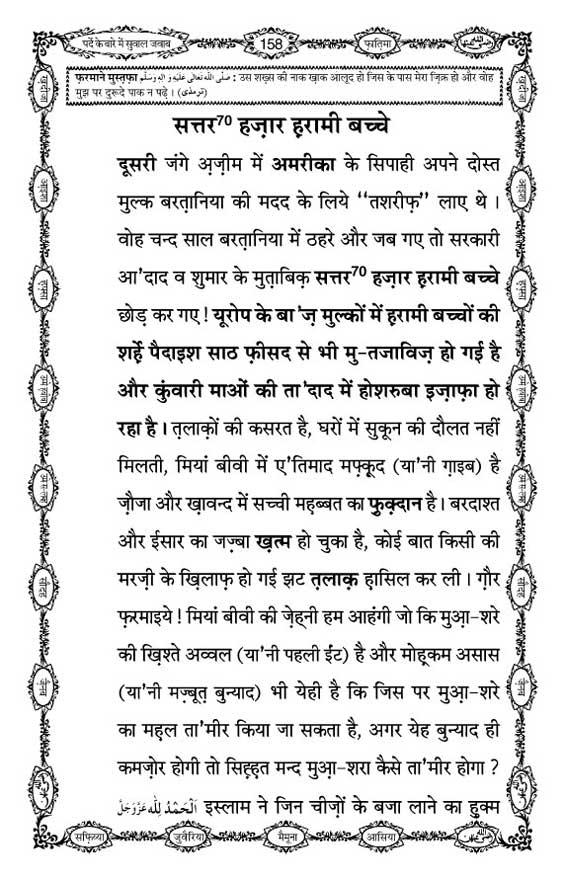 पर्दे के बारे में सुवाल जवाब
158
फ़ातिमा
फ़रमाने मुस्त़फ़ा صَلَّى اللهُ تَعَالٰى عَلَيْهِ وَاٰلِهٖ وَسَلَّم : उस शख़्स की नाक ख़ाक आलूद हो जिस के पास मेरा ज़िक्र हो और वोह
मुझ पर दुरूदे पाक न पढ़े । (ترمذی)
सत्तर70 हज़ार ह़रामी बच्चे
दूसरी जंगे अ़ज़ीम में अमरीका के सिपाही अपने दोस्त
मुल्क बरत़ानिया की मदद के लिये ‘‘तशरीफ़’’ लाए थे ।
वोह चन्द साल बरत़ानिया में ठहरे और जब गए तो सरकारी
आ’दाद व शुमार के मुत़ाबिक़ सत्तर70 हज़ार ह़रामी बच्चे
छोड़ कर गए ! यूरोप के बा’ज़ मुल्कों में ह़रामी बच्चों की
शर्ह़े पैदाइश साठ फ़ीसद से भी मु-तजाविज़ हो गई है
और कुंवारी माओं की ता’दाद में होशरुबा इज़ाफ़ा हो
रहा है । त़लाक़ों की कसरत है, घरों में सुकून की दौलत नहीं
मिलती, मियां बीवी में ए’तिमाद मफ़्क़ूद (या’नी ग़ाइब) है
ज़ौजा और ख़ावन्द में सच्ची मह़ब्बत का फ़ुक़्दान है । बरदाश्त
और ईसार का जज़्बा ख़त्म हो चुका है, कोई बात किसी की
मरज़ी के ख़िलाफ़ हो गई झट त़लाक़ ह़ासिल कर ली । ग़ौर
फ़रमाइये ! मियां बीवी की ज़ेह्नी हम आहंगी जो कि मुआ़-शरे
की ख़िश्ते अव्वल (या’नी पहली ईंट) है और मोह़कम असास
(या’नी मज़्बूत़ बुन्याद) भी येही है कि जिस पर मुआ़-शरे
का मह़ल ता’मीर किया जा सकता है, अगर येह बुन्याद ही
कमज़ोर होगी तो सिह़्ह़त मन्द मुआ़-शरा कैसे ता’मीर होगा ?
اَلْحَمْدُ لِلّٰهِ عَزَّوَجَلَّ इस्लाम ने जिन चीज़ों के बजा लाने का हुक्म
सफ़िय्या
जुवैरिया
मैमूना
आसिया